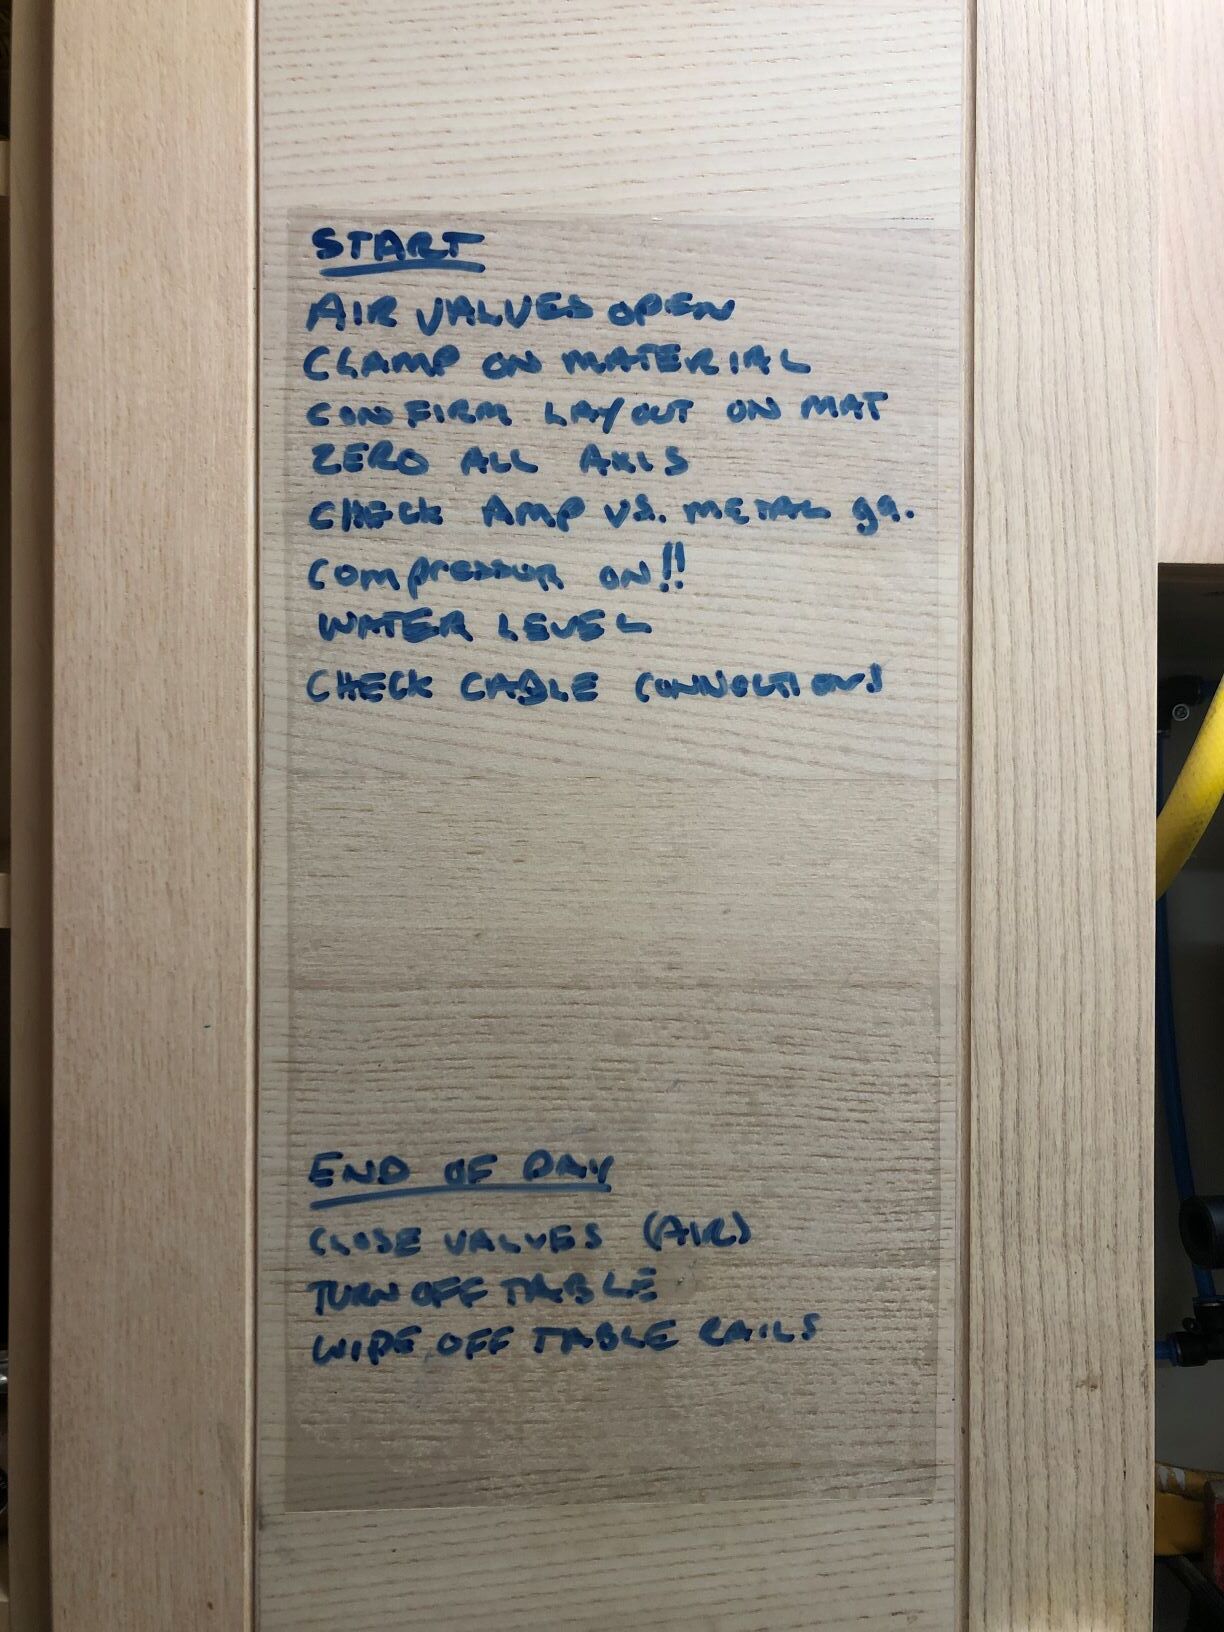 START
AIR VALVES OPEN
CLAMP ON MATERIAL
CONFIRM LAYOUT ON MAT
ZERO ALL AXIS
CHECK AMP VS. METAL ga.
Compressor ON!!
WATER LEVEL
CHECK CABLE CONNECTIONS
END OF DAY
CLOSE VALVES (AIR)
TURN OFF TABLE
WIPE OFF TABLE RAILS